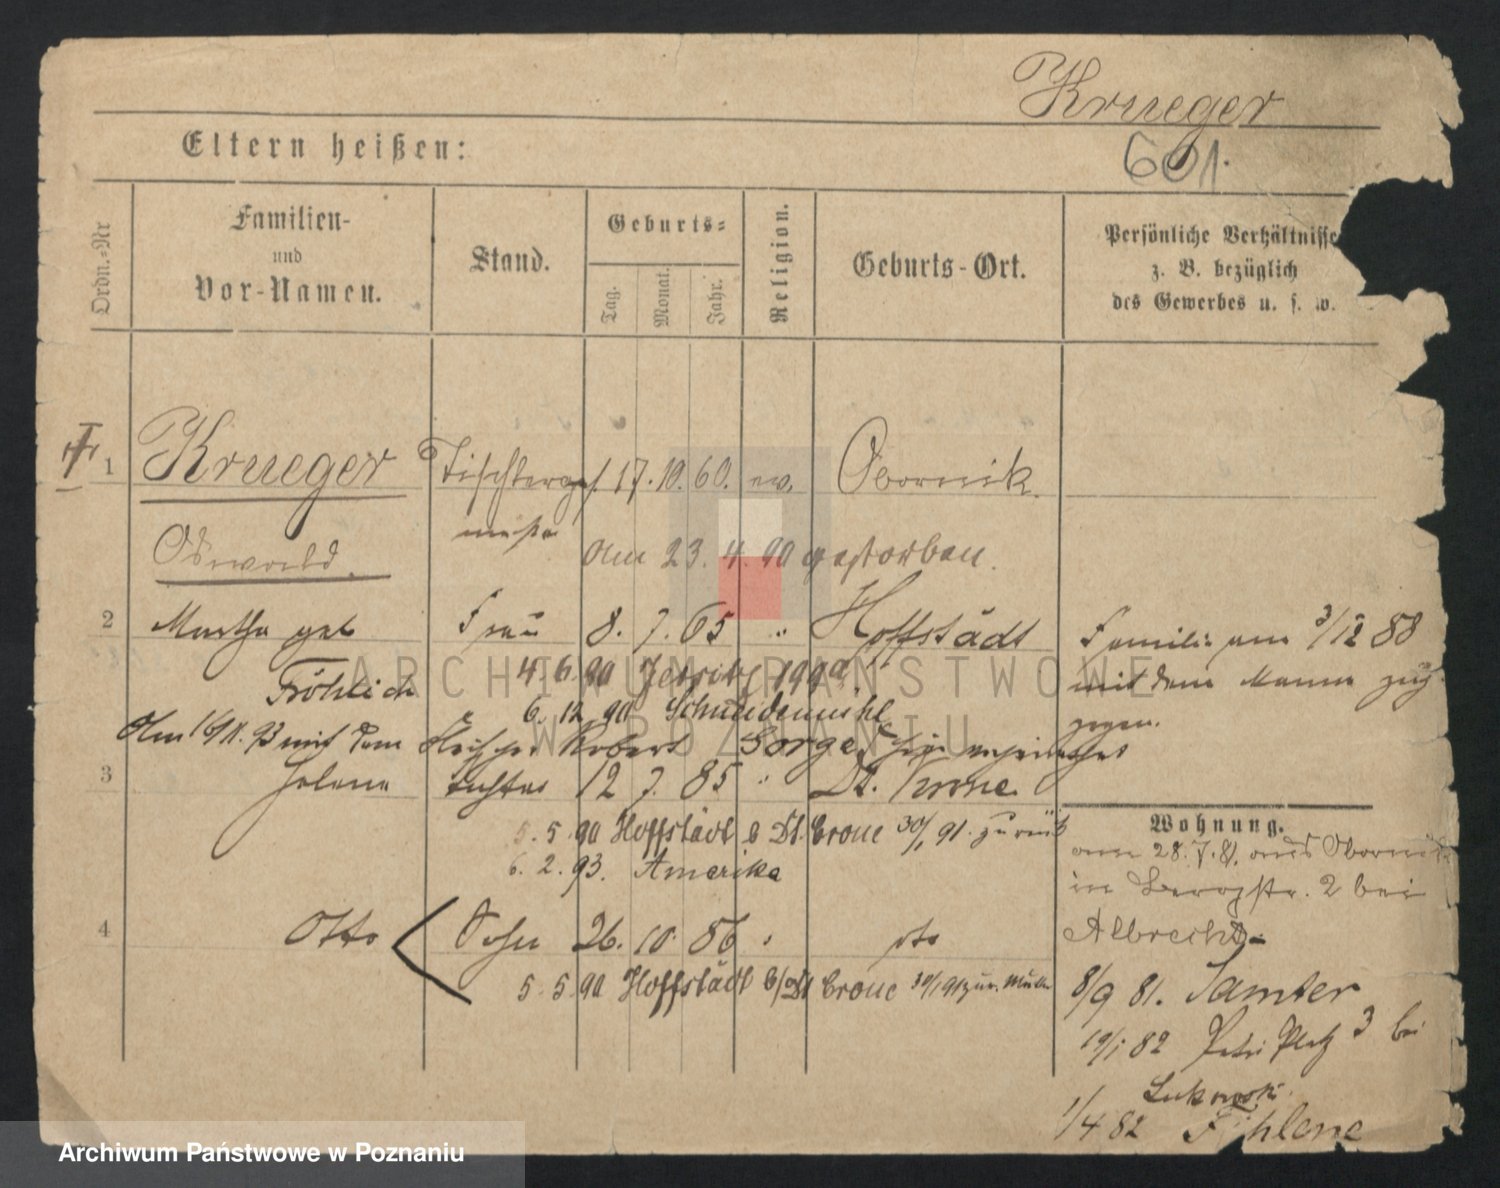 Krueger
601.
Eltern heißen:
Ordn.-Nr
Familien-
und
Vor-Namen.
Stand.
Geburts-
Tag.
Monat.
Jahr.
Religion.
Geburts-Ort.
Persönliche Verhältnisse
z. B. bezüglich
des Gewerbes u. s. w.
1 Krueger Tischlerges. 17. 10. 60. ev. Obornik.
Oswald.
am 23. 4. 90 gestorben.
2 Martha geb Frau 8. 7. 65 " Hoffstädt
Fröhlich
4. 6. 90 Jersitz
6. 12. 90 Schneidemühl
Am 16/11. 93 mit dem Robert Sorge
3 Helene Tochter 12 7. 85 " Dt. Krone.
5. 5. 90 Hoffstädt b Dt. Crone 30/1 91. zurück
6. 2. 93. Amerika
4 Otto Sohn 26. 10. 86 dto
5. 5. 90 Hoffstädt b/Dt Crone 30/1 91 zur. Mutter
Familie am 3/12 88
mit dem Manne zug
gegen.
Wohnung.
am 28. 7. 81. aus Obornik
in Bergstr. 2 bei
Albrecht
8/9 81. Samter
19/1 82 Petri Platz 3 bei
Lukowski
1/4 82 Filehne
ARCHIWUM PAŃSTWOWE
W POZNANIU
Archiwum Państwowe w Poznaniu